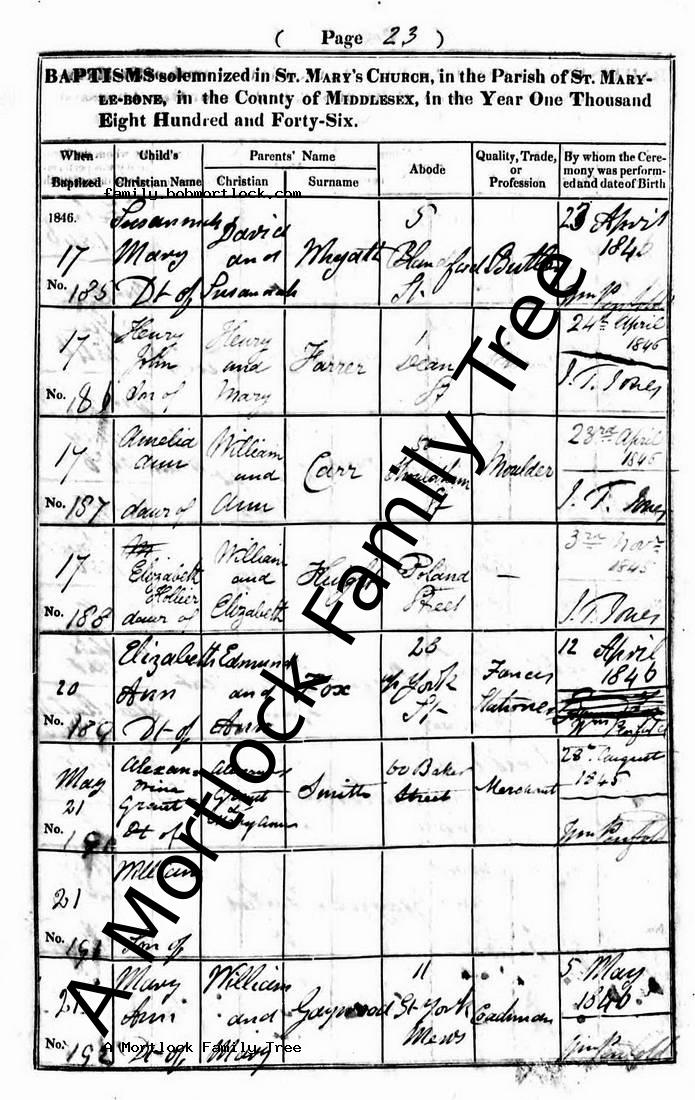 ( Page 23 )
BAPTISMS solemnized in ST. MARY'S CHURCH, in the Parish of ST. MARY-
LE-BONE, in the County of MIDDLESEX, in the Year One Thousand
Eight Hundred and Forty-Six.
When Baptized
Child's Christian Name
Parents' Name
Christian
Surname
Abode
Quality, Trade, or Profession
By whom the Ceremony was performed and date of Birth
family.bobmortlock.com
1846.
17
No. 185
Susannah
Mary
Dt of
David
and
Susannah
Whyatt
5
Blandford
St
Butler
23 April
1846
Wm Penfold
17
No. 186
Henry
John
Sn of
Henry
and
Mary
Farrer
1
Dean
St
24th April
1846
J. T. Jones
17
No. 187
Amelia
Ann
daur of
William
and
Ann
Carr
50
St
Moulder
23rd April
1845
J. T. Jones
17
No. 188
Elizabeth
Hollier
daur of
William
and
Elizabeth
Poland
Street
—
3rd Novr
1845
J. T. Jones
20
No. 189
Elizabeth
Ann
Dt of
Edmund
and
Ann
Fox
23
York
St
Fancy
Stationer
12 April
1846
Wm Penfold
May
21
No. 190
Alexan
drina
Grant
Dt of
Grant
&
Mary Ann
Smith
60 Baker
Street
Merchant
28th August
1845
Wm Penfold
21
No. 191
William
Son of
21
No. 192
Mary
Ann
Dt of
William
and
Mary
Gaywood
11
St York
Mews
Coachman
5 May
1846
Wm Penfold
A Mortlock Family Tree
A Mortlock Family Tree